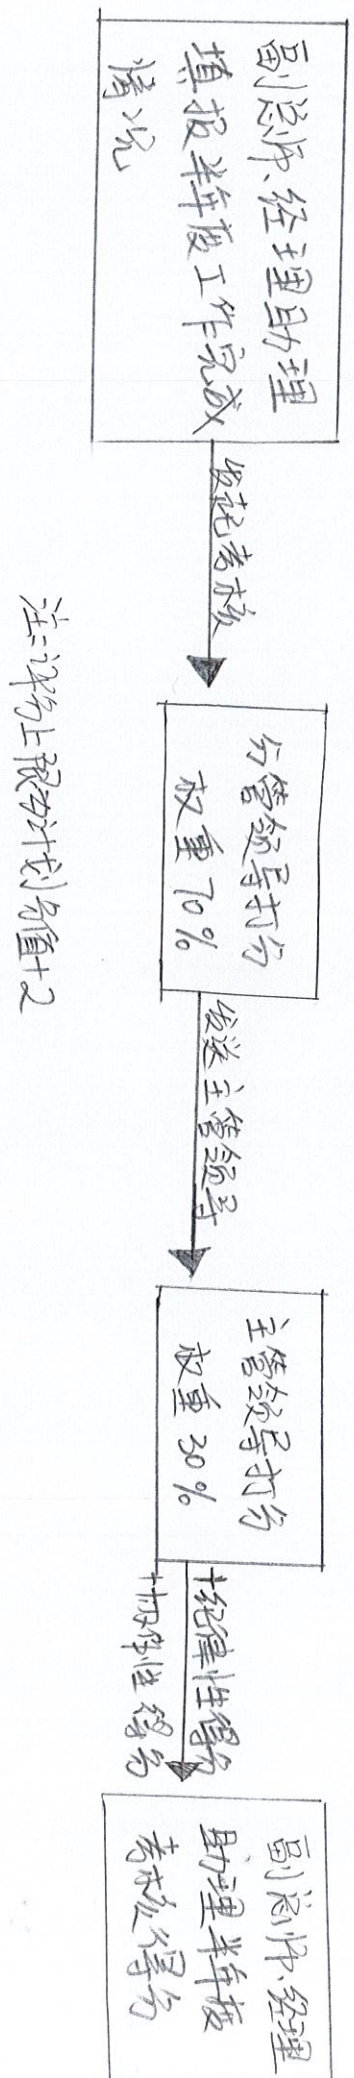 副总师、经理助理
填报半年度工作完成
情况
发起考核
分管领导打分
权重70%
发送主管领导
主管领导打分
权重30%
+纪律性得分
+协作性得分
副总师、经理
助理半年度
考核得分
注:评分上限为计划分值+2